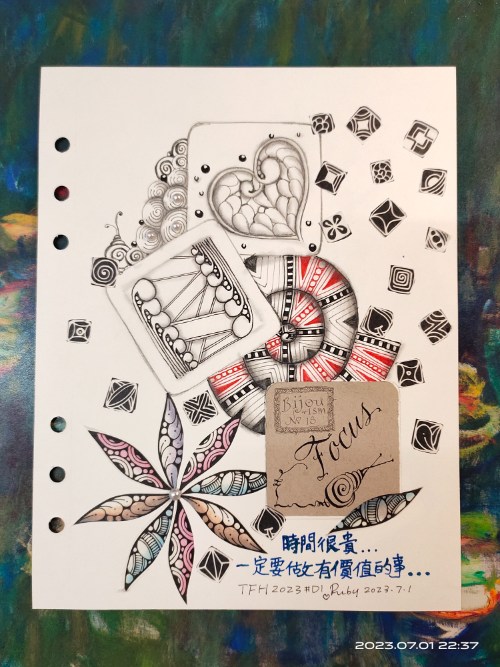 Bijou
ism
No 16
Focus
時間很貴...
一定要做有價值的事...
TFH 2023 #D1 Ruby 2023.7.1
2023.07.01 22:37